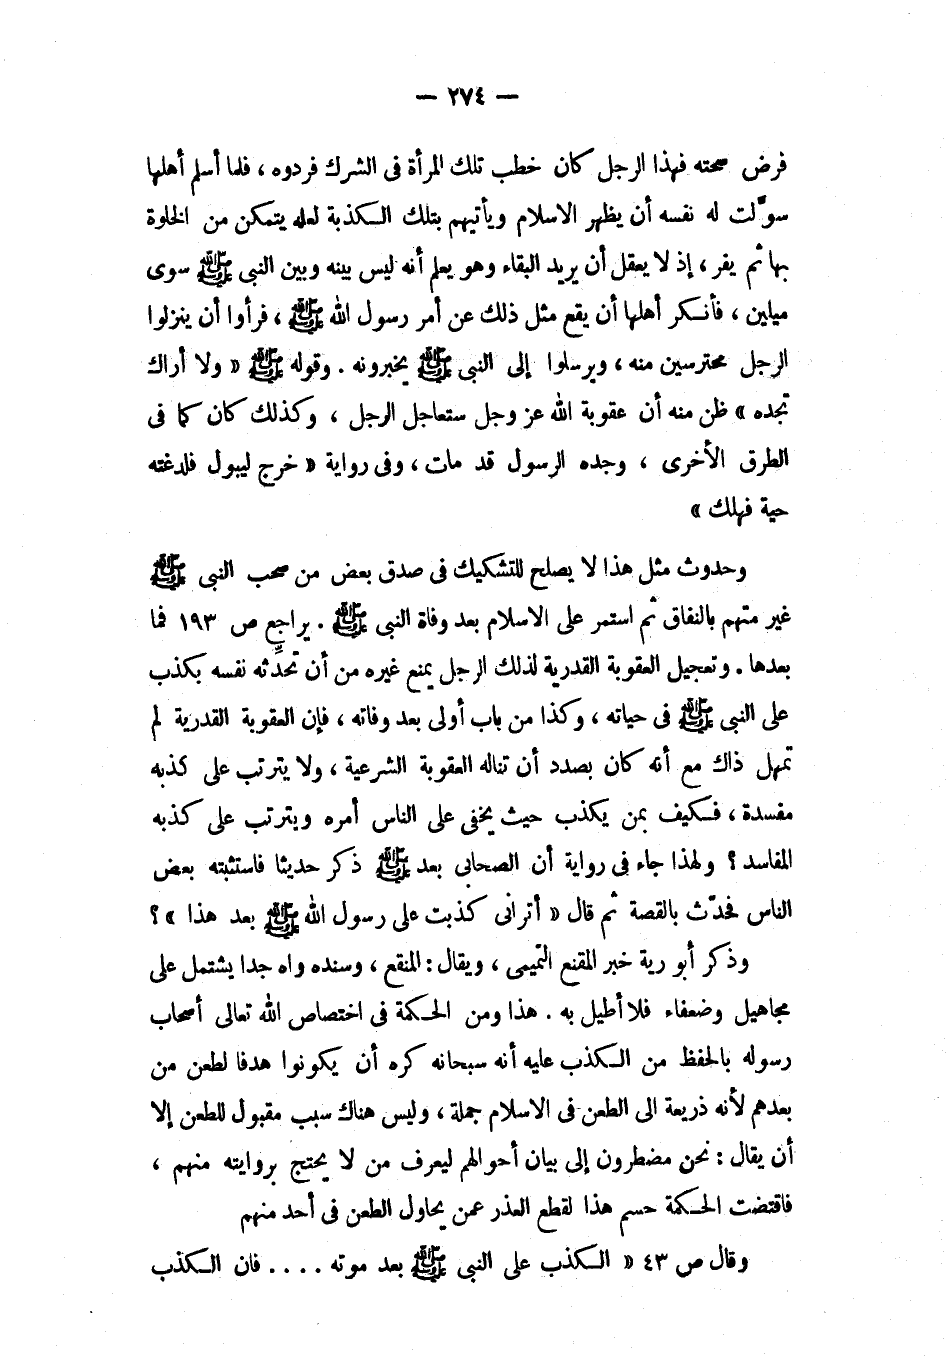 — ٢٧٤ —
فرض صحته فهذا الرجل كان خطب تلك المرأة فى الشرك فردوه ، فلما أسلم أهلها
سوّلت له نفسه أن يظهر الاسلام ويأتيهم بتلك الكذبة لعله يتمكن من الخلوة
بها ثم يفر ، إذ لا يعقل أن يريد البقاء وهو يعلم أنه ليس بينه وبين النبى ﷺ سوى
ميلين ، فأنكر أهلها أن يقع مثل ذلك عن أمر رسول الله ﷺ ، فرأوا أن ينزلوا
الرجل محترسين منه ، ويرسلوا إلى النبى ﷺ يخبرونه . وقوله ﷺ « ولا أراك
تجده » ظن منه أن عقوبة الله عز وجل ستعاجل الرجل ، وكذلك كان كما فى
الطرق الأخرى ، وجده الرسول قد مات ، وفى رواية « خرج ليبول فلدغته
حية فهلك »
وحدوث مثل هذا لا يصلح للتشكيك فى صدق بعض من صحب النبى ﷺ
غير متهم بالنفاق ثم استمر على الاسلام بعد وفاة النبى ﷺ . يراجع ص ١٩٣ فما
بعدها . وتعجيل العقوبة القدرية لذلك الرجل يمنع غيره من أن تحدِّثه نفسه بكذب
على النبى ﷺ فى حياته ، وكذا من باب أولى بعد وفاته ، فإن العقوبة القدرية لم
تمهل ذاك مع أنه كان بصدد أن تناله العقوبة الشرعية ، ولا يترتب على كذبه
مفسدة ، فكيف بمن يكذب حيث يخفى على الناس أمره ويترتب على كذبه
المفاسد ؟ ولهذا جاء فى رواية أن الصحابى بعد ﷺ ذكر حديثا فاستثبته بعض
الناس فحدّث بالقصة ثم قال « أترانى كذبت على رسول الله ﷺ بعد هذا » ؟
وذكر أبو رية خبر المقنع التميمى ، ويقال : المنقع ، وسنده واه جدا يشتمل على
مجاهيل وضعفاء فلا أطيل به . هذا ومن الحكمة فى اختصاص الله تعالى أصحاب
رسوله بالحفظ من الكذب عليه أنه سبحانه كره أن يكونوا هدفا لطعن من
بعدهم لأنه ذريعة الى الطعن فى الاسلام جملة ، وليس هناك سبب مقبول للطعن إلا
أن يقال : نحن مضطرون إلى بيان أحوالهم ليعرف من لا يحتج بروايته منهم ،
فاقتضت الحكمة حسم هذا لقطع العذر عمن يحاول الطعن فى أحد منهم
وقال ص ٤٣ « الكذب على النبى ﷺ بعد موته . . . . فان الكذب